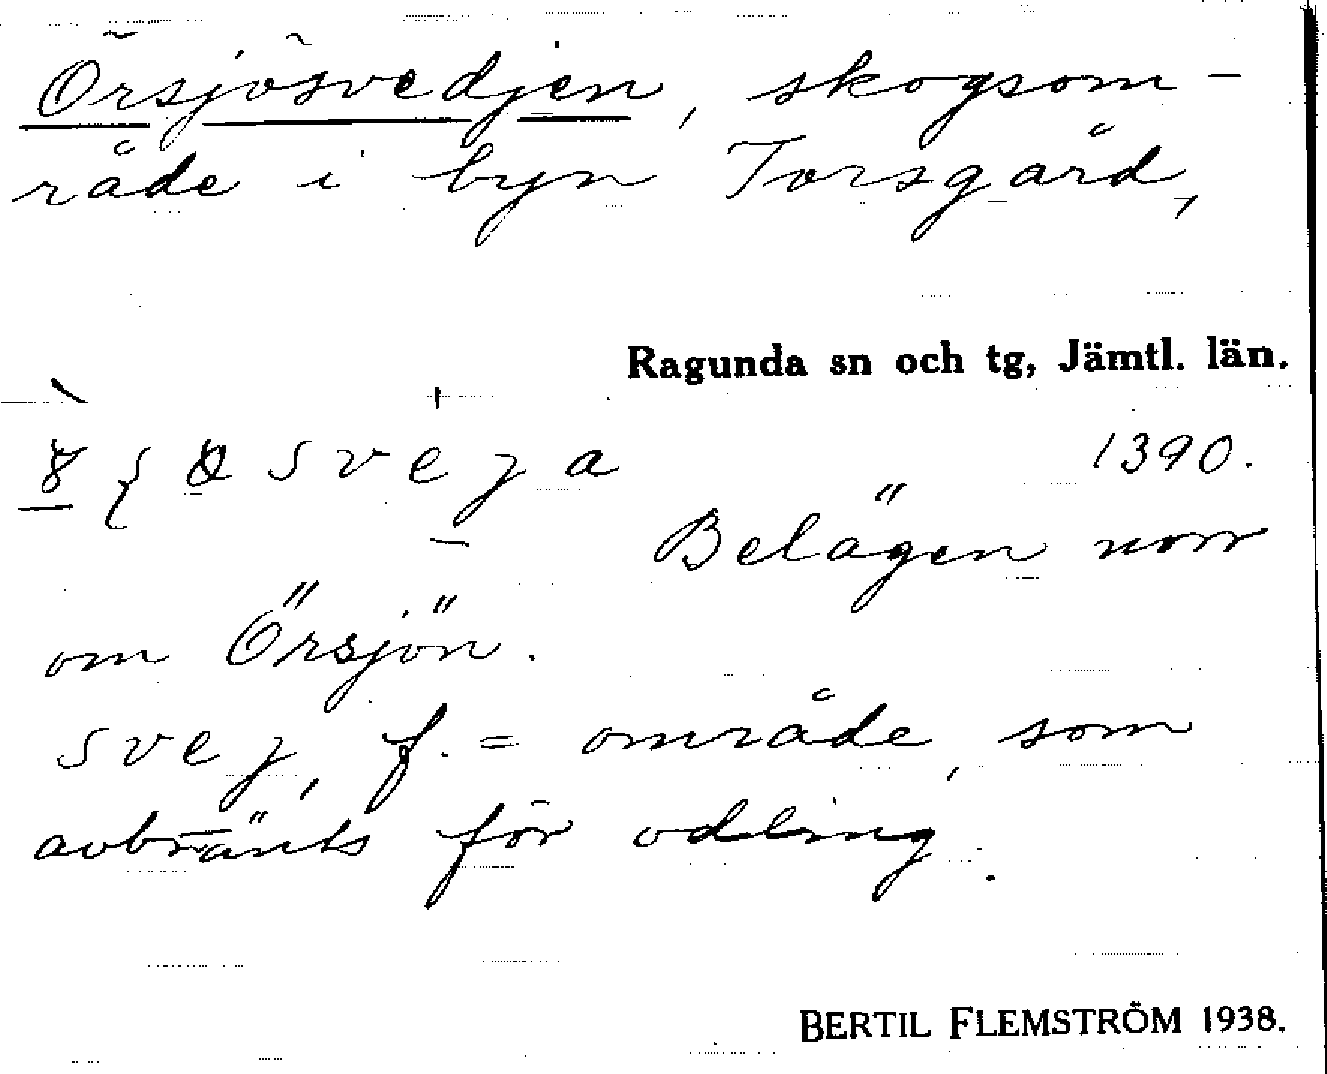 Örsjösvedjen, skogsom-
råde i byn Torsgård,
Ragunda sn och tg, Jämtl. län.
1390.
Belägen norr
om Örsjön.
svej, f. = område, som
avbränts för odling.
BERTIL FLEMSTRÖM 1938.